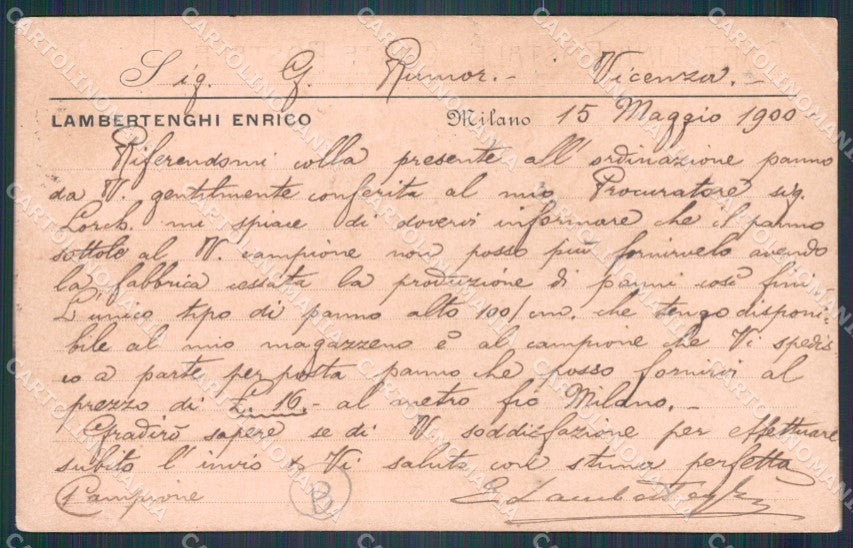 Sig. G. Rumor. - Vicenza. -
LAMBERTENGHI ENRICO Milano 15 Maggio 1900
Riferendomi colla presente all'ordinazione panno
da V. gentilmente conferita al mio Procuratore sig.
Lorch. mi spiace di dovervi informare che il panno
sottole al V. campione non posso più fornirvelo avendo
la fabbrica cessata la produzione di panni così fini.
L'unico tipo di panno alto 100/cm. che tengo disponi-
bile al mio magazzeno è al campione che Vi spedis
co a parte per posta panno che posso fornirvi al
prezzo di L. 16.- al metro fco Milano. -
Gradirò sapere se di V soddisfazione per effettuare
subito l'invio & Vi saluto con stima perfetta
1 Campione